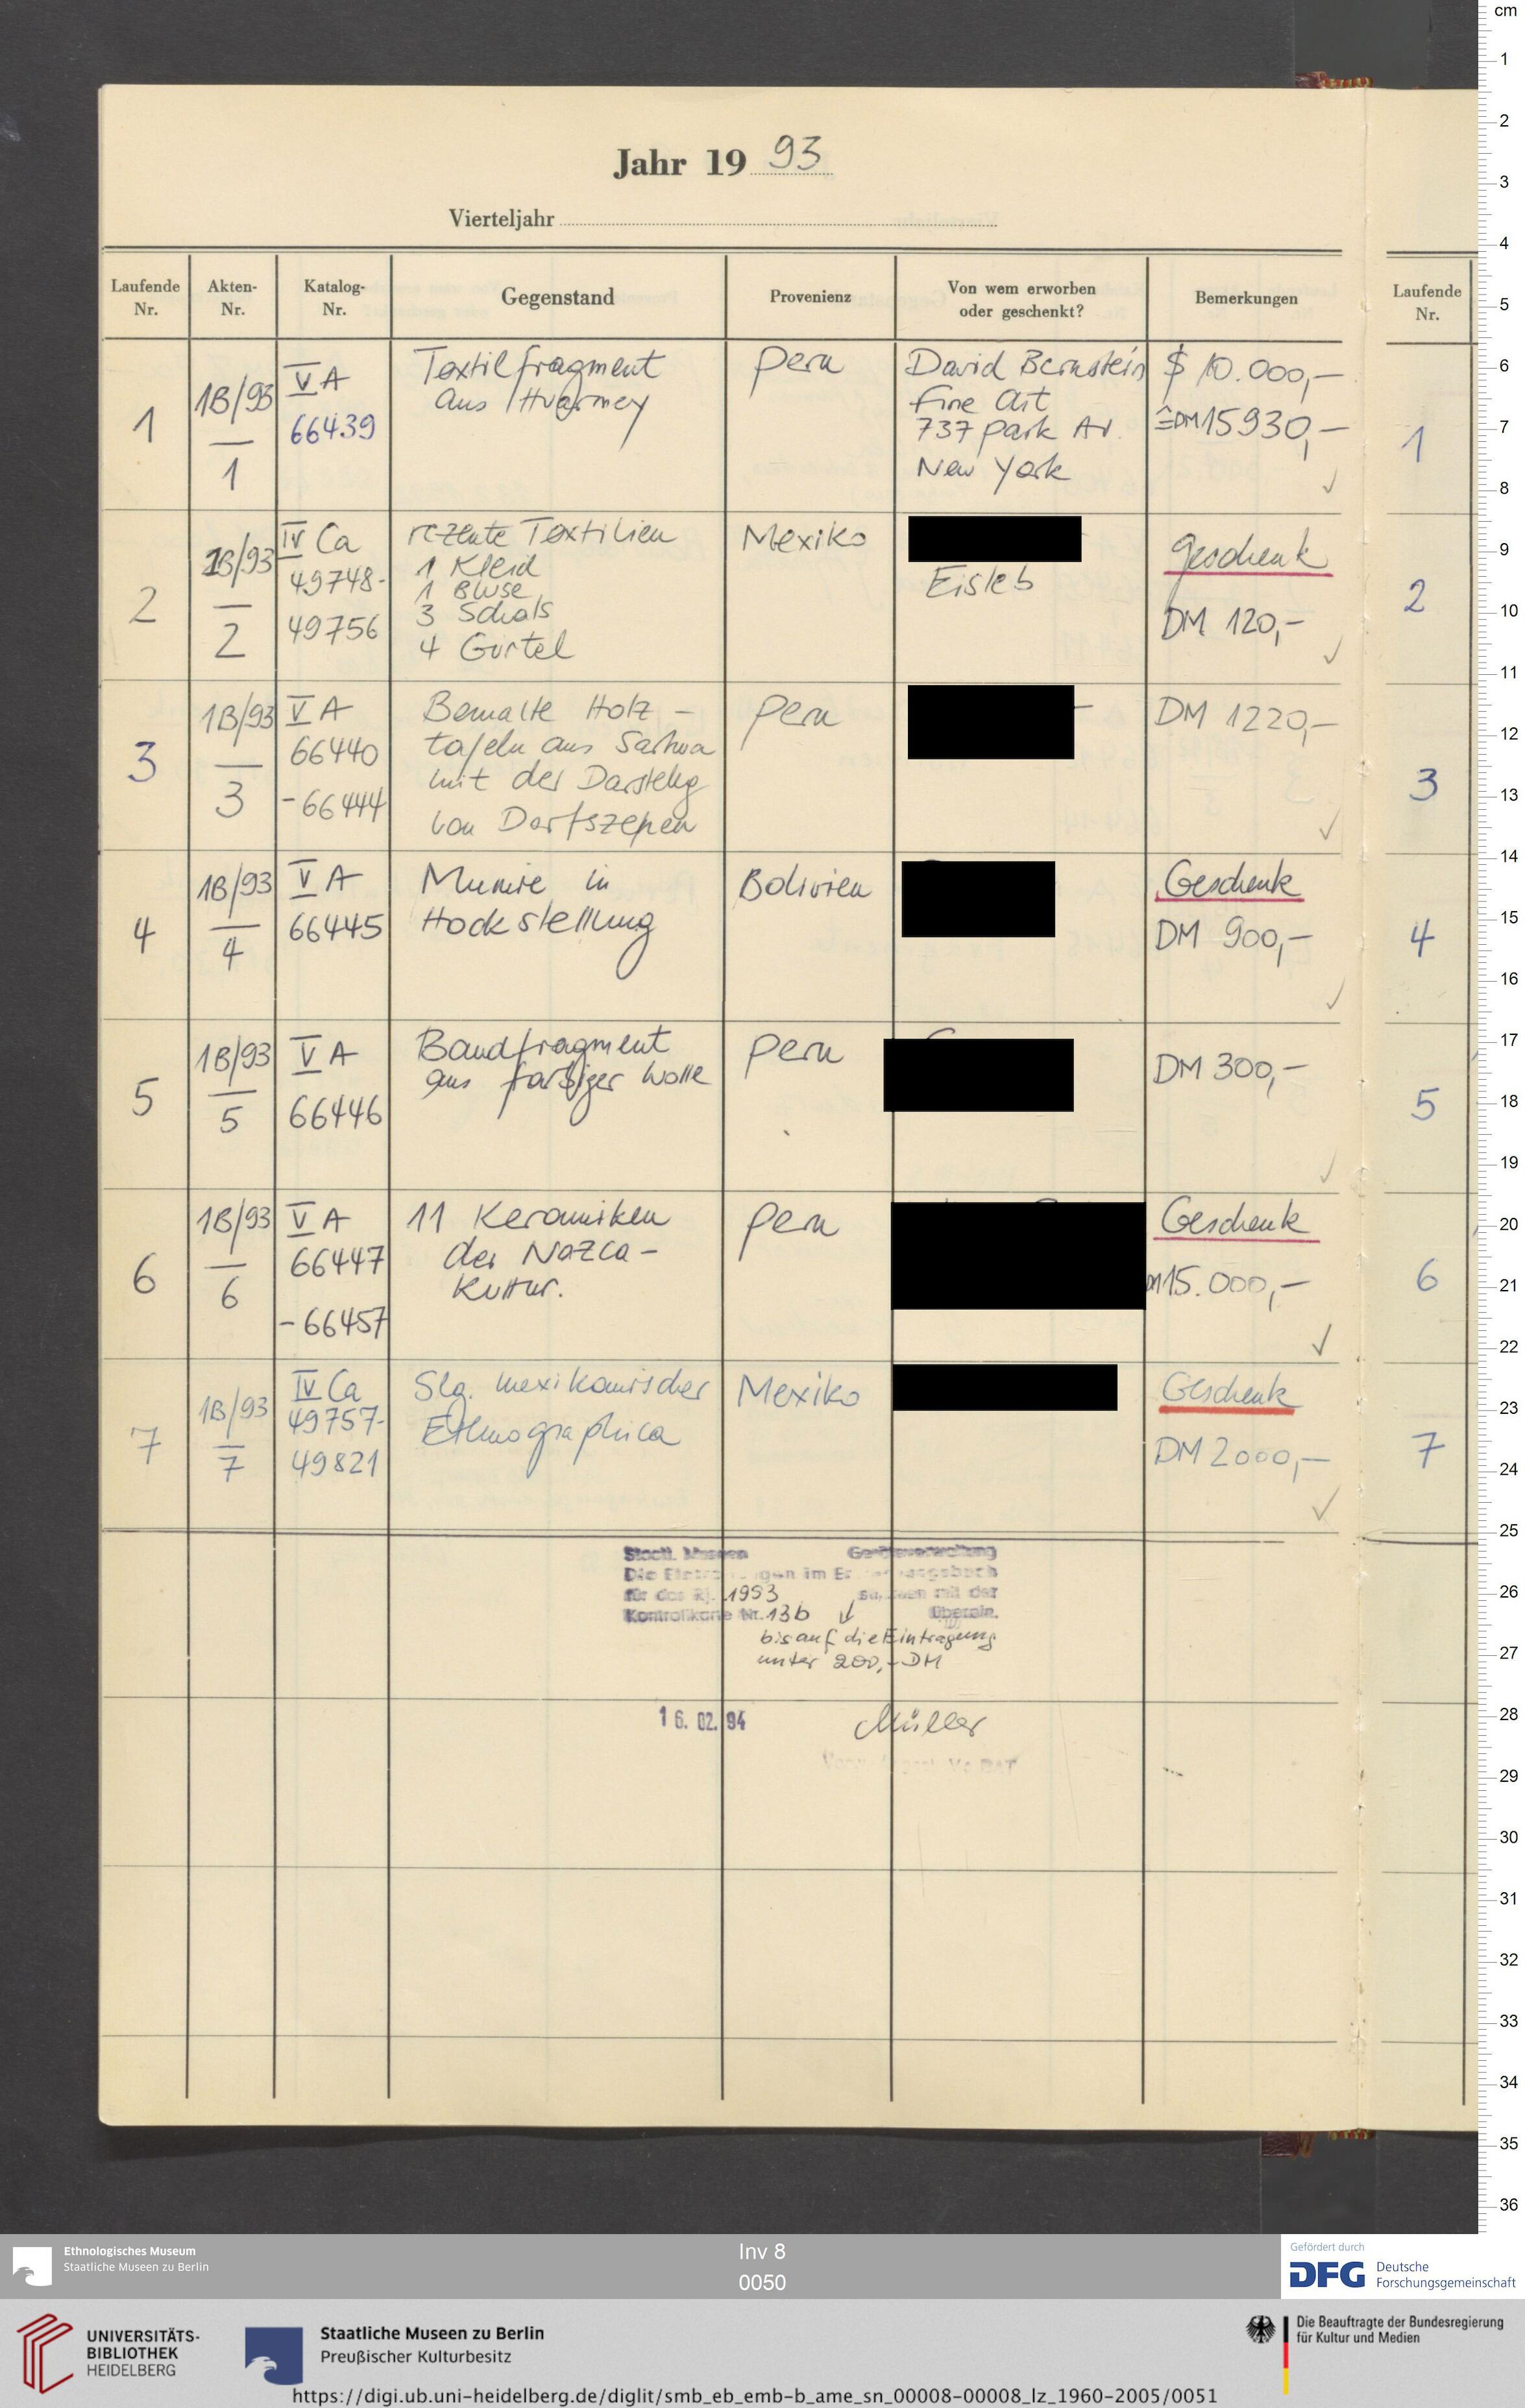 Jahr 19 93
Vierteljahr
Laufende Nr.
Akten-Nr.
Katalog-Nr.
Gegenstand
Provenienz
Von wem erworben oder geschenkt?
Bemerkungen
Laufende Nr.
1
1B/93
1
V A
66439
Textilfragment
aus Huarmey
Peru
David Bernstein
Fine Art
737 Park Av.
New York
$ 10.000,—
≙DM 15930,—
✓
1
2
1B/93
2
IV Ca
49748-
49756
rezente Textilien
1 Kleid
1 Bluse
3 Schals
4 Gürtel
Mexiko
Eisleb
Geschenk
DM 120,—
✓
2
3
1B/93
3
V A
66440
-66444
Bemalte Holz-
tafeln aus Sarhua
mit der Darstellg
von Dorfszenen
Peru
DM 1220,—
✓
3
4
1B/93
4
V A
66445
Mumie in
Hockstellung
Bolivien
Geschenk
DM 900,—
✓
4
5
1B/93
5
V A
66446
Bandfragment
aus farbiger Wolle
Peru
DM 300,—
✓
5
6
1B/93
6
V A
66447
-66457
11 Keramiken
der Nazca-
Kultur.
Peru
Geschenk
DM 15.000,—
✓
6
7
1B/93
7
IV Ca
49757-
49821
Slg. mexikanischer
Ethnographica
Mexiko
Geschenk
DM 2000,—
✓
7
Staatl. Museen Geräteverwaltung
Die Eintragungen im
für das Rj. 1993 mit der
Kontrollkarte Nr. 13b überein.
bis auf die Eintragung
unter 200,— DM
16. 02. 94 Müller
cm
1
2
3
4
5
6
7
8
9
10
11
12
13
14
15
16
17
18
19
20
21
22
23
24
25
26
27
28
29
30
31
32
33
34
35
36
Ethnologisches Museum
Staatliche Museen zu Berlin
Inv 8
0050
Gefördert durch
DFG Deutsche
Forschungsgemeinschaft
UNIVERSITÄTS-
BIBLIOTHEK
HEIDELBERG
Staatliche Museen zu Berlin
Preußischer Kulturbesitz
Die Beauftragte der Bundesregierung
für Kultur und Medien
https://digi.ub.uni-heidelberg.de/diglit/smb_eb_emb-b_ame_sn_00008-00008_lz_1960-2005/0051